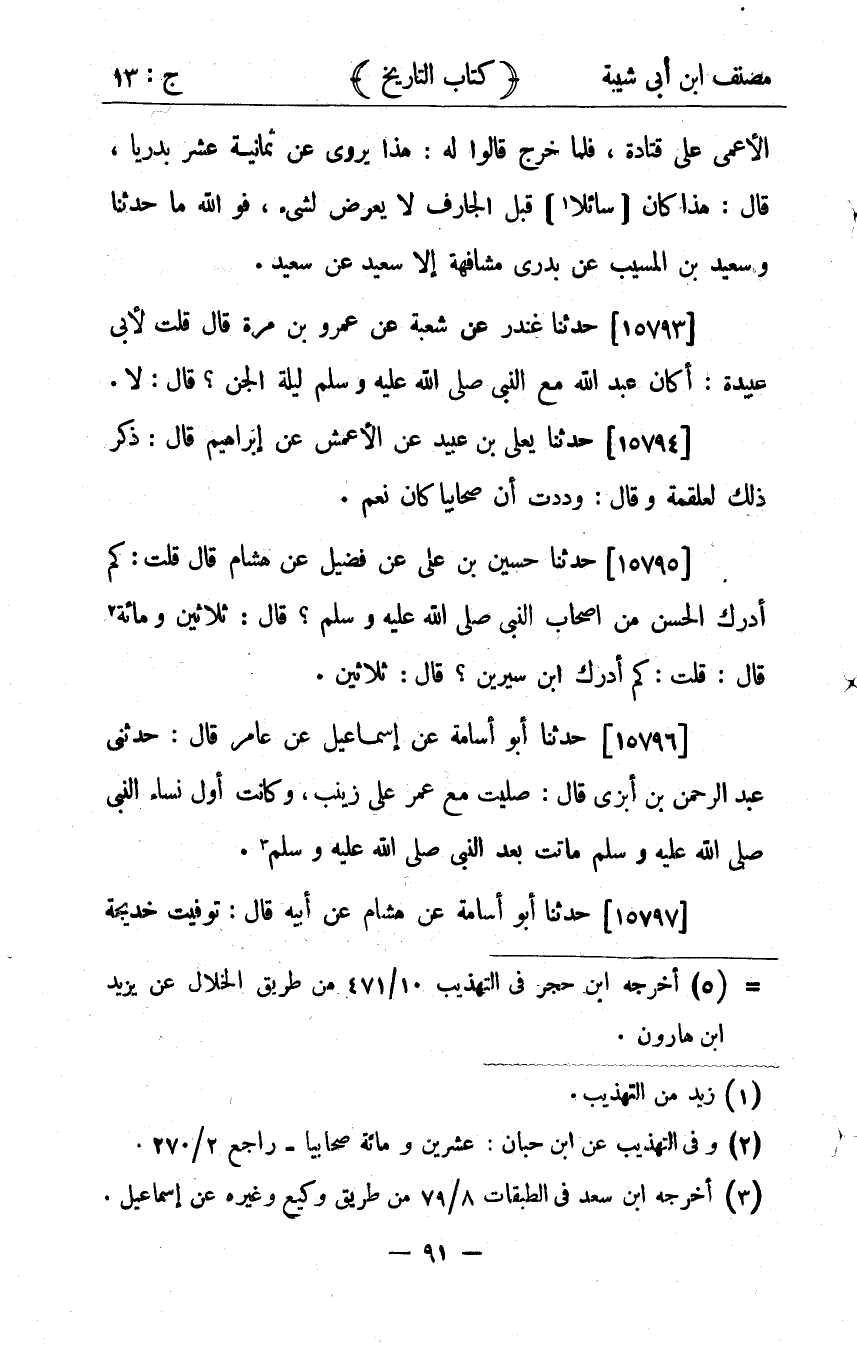 مصنف ابن أبى شيبة ﴿ كتاب التاريخ ﴾ ج : ١٣
الأعمى على قتادة ، فلما خرج قالوا له : هذا يروى عن ثمانيـة عشر بدريا ،
قال : هذا كان [ سائلا١ ] قبل الجارف لا يعرض لشىء ، فو الله ما حدثنا
و سعيد بن المسيب عن بدرى مشافهة إلا سعيد عن سعيد .
[١٥٧٩٣] حدثنا غندر عن شعبة عن عمرو بن مرة قال قلت لأبى
عبيدة : أكان عبد الله مع النبى صلى الله عليه و سلم ليلة الجن ؟ قال : لا .
[١٥٧٩٤] حدثنا يعلى بن عبيد عن الأعمش عن إبراهيم قال : ذكر
ذلك لعلقمة و قال : وددت أن صحابيا كان نعم .
[١٥٧٩٥] حدثنا حسين بن على عن فضيل عن هشام قال قلت : كم
أدرك الحسن من اصحاب النبى صلى الله عليه و سلم ؟ قال : ثلاثين و مائة٢
قال : قلت : كم أدرك ابن سيرين ؟ قال : ثلاثين .
[١٥٧٩٦] حدثنا أبو أسامة عن إسمـاعيل عن عامر قال : حدثنى
عبد الرحمن بن أبزى قال : صليت مع عمر على زينب ، وكانت أول نساء النبى
صلى الله عليه و سلم ماتت بعد النبى صلى الله عليه و سلم٣ .
[١٥٧٩٧] حدثنا أبو أسامة عن هشام عن أبيه قال : توفيت خديجة
= (٥) أخرجه ابن حجر فى التهذيب ٤٧١/١٠ من طريق الخلال عن يزيد
ابن هارون .
(١) زيد من التهذيب .
(٢) و فى التهذيب عن ابن حبان : عشرين و مائة صحابيا ـ راجع ٢٧٠/٢ .
(٣) أخرجه ابن سعد فى الطبقات ٧٩/٨ من طريق وكيع وغيره عن إسماعيل .
— ٩١ —